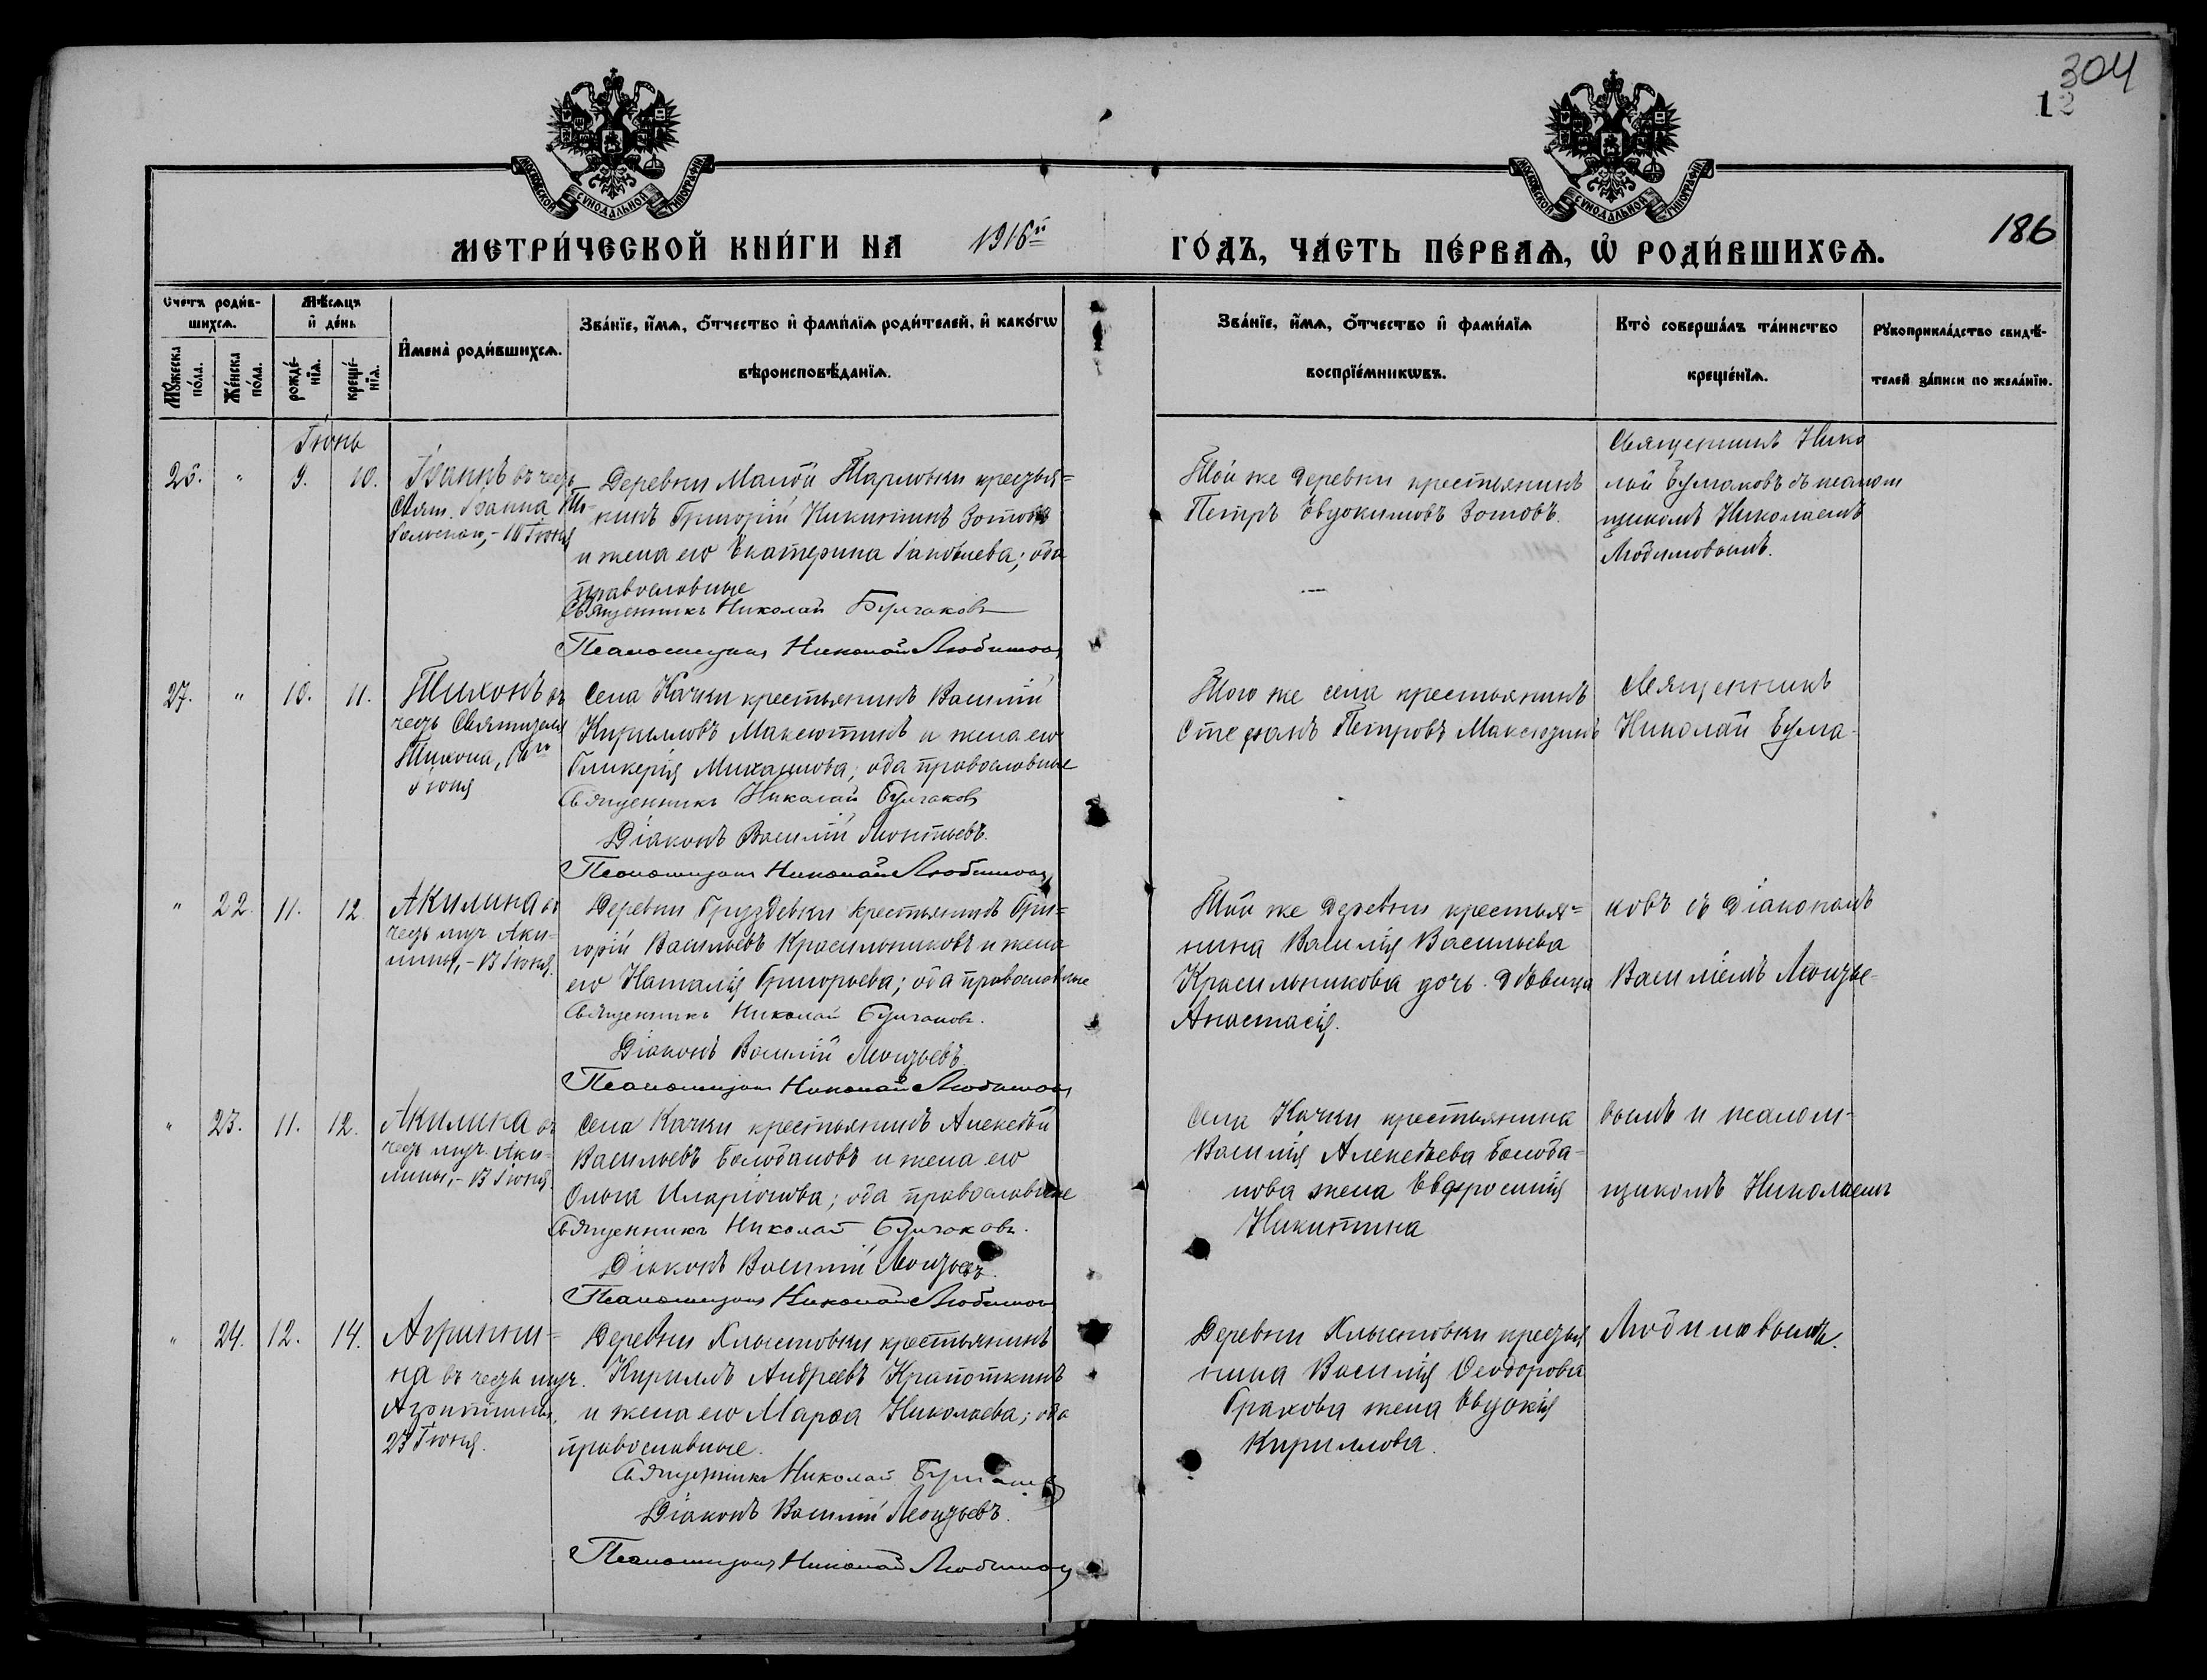 304
12
186
МОСКОВСКОЙ СѴНОДАЛЬНОЙ ТИПОГРАФІИ
МОСКОВСКОЙ СѴНОДАЛЬНОЙ ТИПОГРАФІИ
МЕТРИ́ЧЕСКОЙ КНИ́ГИ НА 1916й ГО́ДЪ, ЧА́СТЬ ПЕ́РВАѦ, Ѡ҆ РОДИ́ВШИХСѦ.
Сче́тъ роди́в-
шихсѧ.
Мѣ́сѧцъ
и҆ де́нь
Мꙋ́жеска
по́ла.
Же́нска
по́ла.
рожде́-
нїѧ.
креще́-
нїѧ.
И҆мена̀ роди́вшихсѧ.
Зва́нїе, и҆́мѧ, ѻ҆́тчество и҆ фами́лїѧ роди́телей, и҆ како́гѡ
вѣроисповѣ́данїѧ.
Зва́нїе, и҆́мѧ, ѻ҆́тчество и҆ фами́лїѧ
воспрїе́мникѡвъ.
Кто̀ соверша́лъ та́инство
креще́нїѧ.
Рꙋкоприкла́дство свидѣ́-
телей за́писи по жела́нїю.
Іюнь
26. " 9. 10.
Іоаннъ въ честь
Свят. Іоанна То-
больскаго, - 10 Іюня
Деревни Малой Тарловки крестья=
нинъ Григорій Никитинъ Зотовъ
и жена его Екатерина Іаковлева; оба
православные
Священникъ Николай Булгаковъ
Псаломщикъ Николай Любимовъ
Той же деревни крестьянинъ
Петръ Евдокимовъ Зотовъ.
Священникъ Нико
лай Булгаковъ съ псаломщикомъ Николаемъ
Любимовымъ.
27. " 10. 11.
Тихонъ въ
честь Святителя
Тихона, 16го
Іюня
Села Качки крестьянинъ Василій
Кирилловъ Максютинъ и жена его
Гликерія Михаилова; оба православные
Священникъ Николай Булгаковъ
Діаконъ Василій Леонтьевъ.
Псаломщикъ Николай Любимовъ
Того же села крестьянинъ
Стефанъ Петровъ Максютинъ
Священникъ
Николай Булга-
" 22. 11. 12.
Акилина въ
честь муч. Аки-
лины, - 13 Іюня.
Деревни Груздевки крестьянинъ Гри=
горій Васильевъ Красильниковъ и жена
его Наталія Григорьева; оба православные
Священникъ Николай Булгаковъ.
Діаконъ Василій Леонтьевъ
Псаломщикъ Николай Любимовъ
Той же деревни крестья=
нина Василія Васильева
Красильникова дочь девица
Анастасія.
ковъ съ діакономъ
Василіемъ Леонтье-
" 23. 11. 12.
Акилина въ
честь муч. Аки-
лины, - 13 Іюня
Села Качки крестьянинъ Алексѣй
Васильевъ Болобановъ и жена его
Ольга Иларіонова; оба православные
Священникъ Николай Булгаковъ.
Діаконъ Василій Леонтьевъ.
Псаломщикъ Николай Любимовъ
Села Качки крестьянина
Василія Алексѣева Болоба-
нова жена Евфросинія
Никитина
вымъ и псалом-
щикомъ Николаемъ
" 24. 12. 14.
Агриппи-
на въ честь муч.
Агриппины,
23 Іюня.
Деревни Хлыстовки крестьянинъ
Кириллъ Андреевъ Крапоткинъ
и жена его Марѳа Николаева; оба
православные.
Священникъ Николай Булгаковъ
Діаконъ Василій Леонтьевъ.
Псаломщикъ Николай Любимовъ
Деревни Хлыстовки крестья
нина Василія Ѳеодорова
Грахова жена Евдокія
Кириллова.
Любимовымъ.